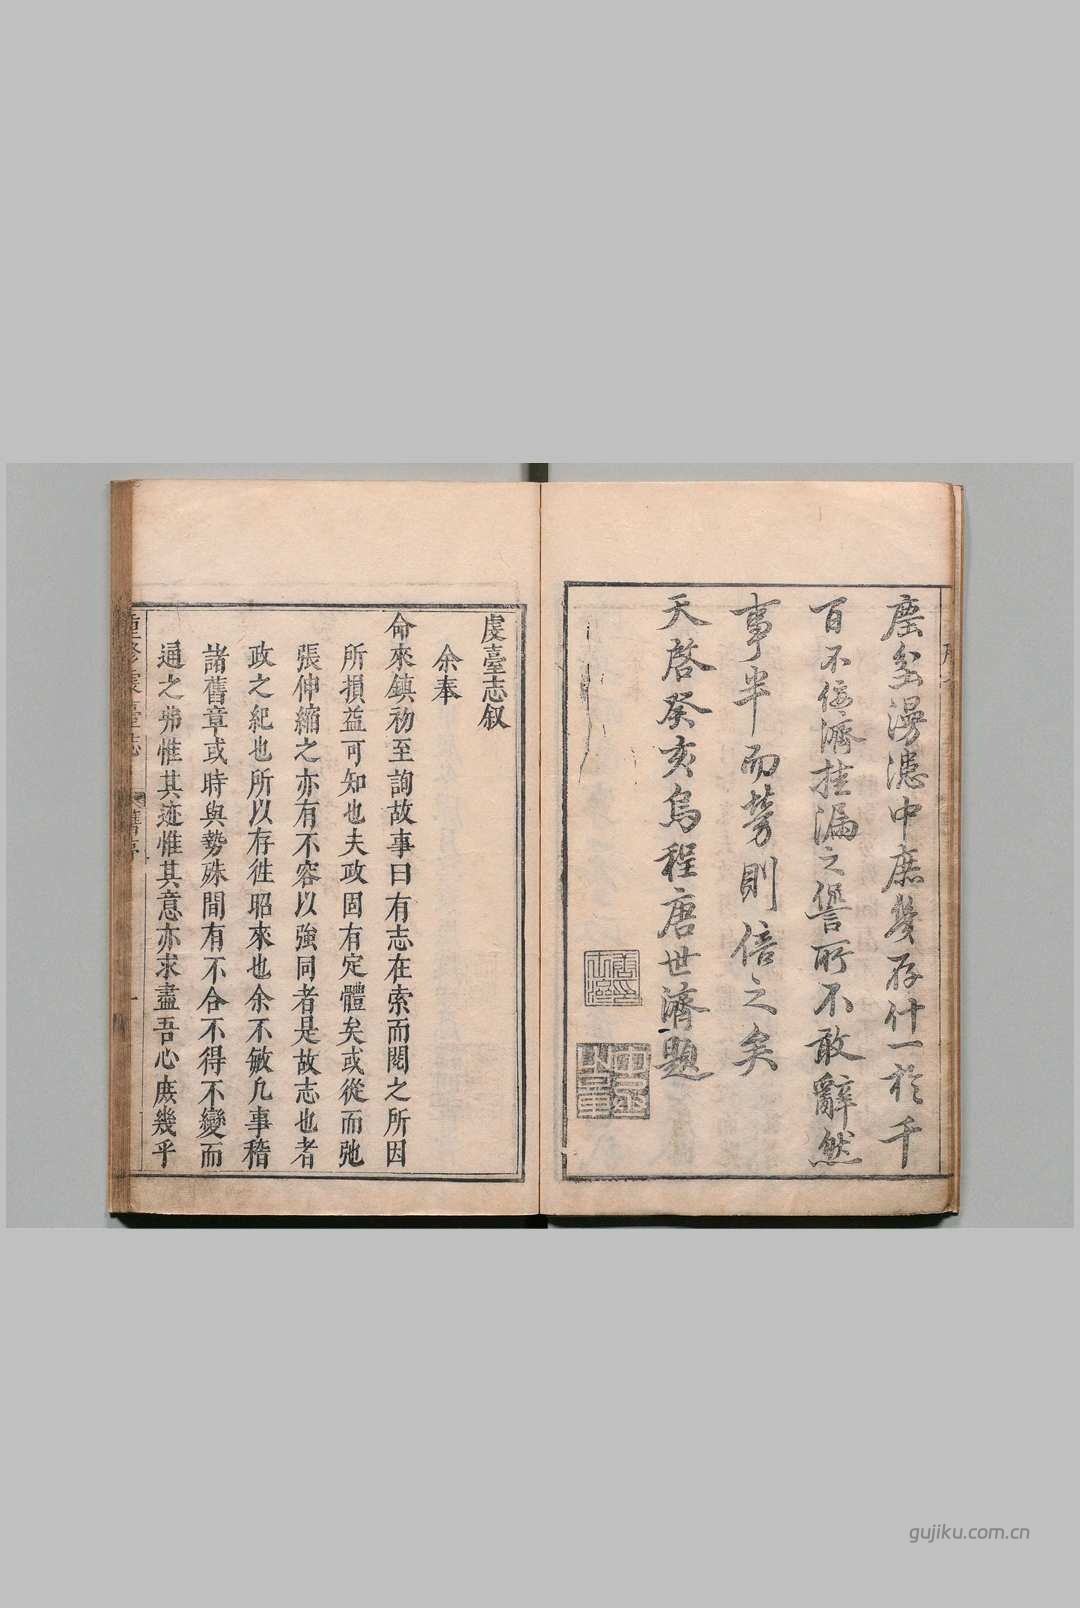 塵坌漫漶中庶幾存什一於千
百不佞濟挂漏之譽所不敢辭然
事半而勞則倍之矣
天啓癸亥烏程唐世濟題
虔臺志叙
余奉
命來鎮初至詢故事曰有志在索而閱之所因
所損益可知也夫政固有定體矣或從而弛
張伸縮之亦有不容以強同者是故志也者
政之紀也所以存徃昭來也余不敏凡事稽
諸舊章或時與勢殊間有不合不得不變而
通之弗惟其迹惟其意亦求盡吾心庶幾乎
重修虔臺志 舊序 一
gujiku.com.cn